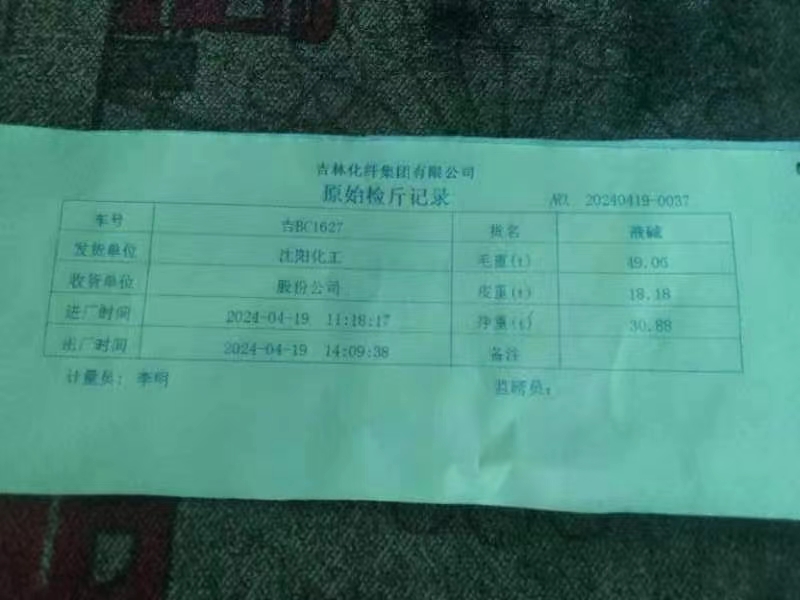 吉林化纤集团有限公司
原始检斤记录
20240419-0037
车号 吉BC1627 货名 液碱
发货单位 沈阳化工 毛重(t) 49.06
收货单位 股份公司 皮重(t) 18.18
进厂时间 2024-04-19 11:18:17 净重(t) 30.88
出厂时间 2024-04-19 14:09:38 备注
计量员: 李明 监磅员: